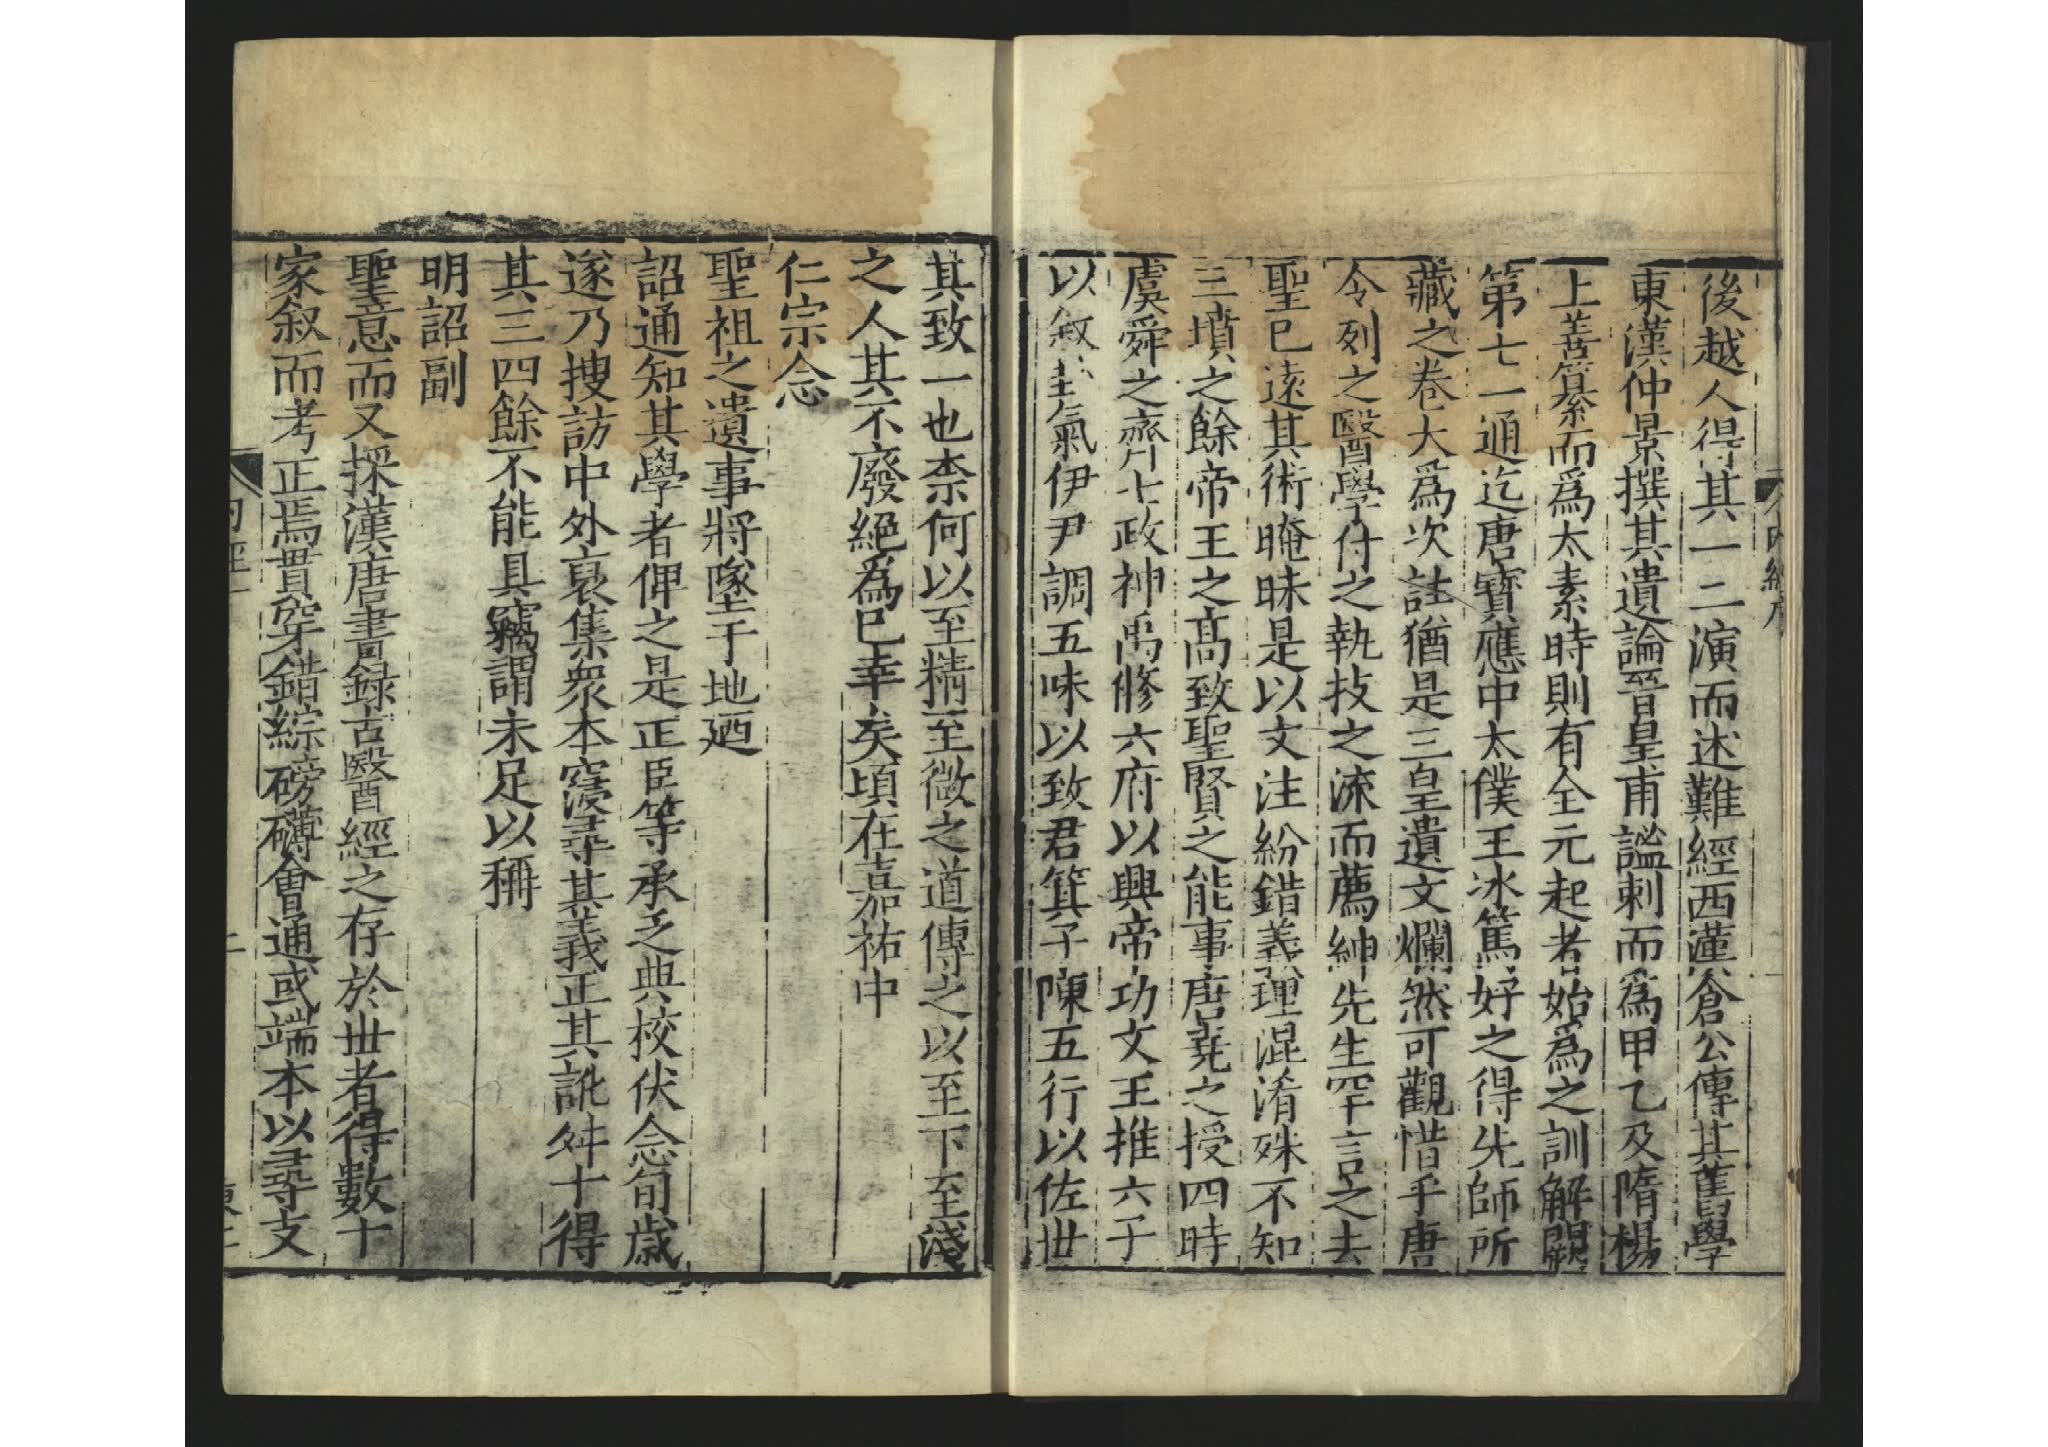 後越人得其一二演而述難經西漢倉公傳其舊學
東漢仲景撰其遺論晉皇甫謐刺而爲甲乙及隋楊
上善纂而爲太素時則有全元起者始爲之訓解闕
第七一通迄唐寶應中太僕王冰篤好之得先師所
藏之卷大爲次註猶是三皇遺文爛然可觀惜乎唐
令列之醫學付之執技之流而薦紳先生罕言之去
聖已遠其術晻昧是以文注紛錯義理混淆殊不知
三墳之餘帝王之高致聖賢之能事唐堯之授四時
虞舜之齊七政神禹脩六府以興帝功文王推六子
以敘卦氣伊尹調五味以致君箕子陳五行以佐世
其致一也柰何以至精至微之道傳之以至下至淺
之人其不廢絕爲已幸矣頃在嘉祐中
仁宗念
聖祖之遺事將墜于地廼
詔通知其學者俾之是正臣等承乏典校伏念旬歲
遂乃搜訪中外裒集衆本寖尋其義正其訛舛十得
其三四餘不能具竊謂未足以稱
明詔副
聖意而又採漢唐書録古醫經之存於世者得數十
家叙而考正焉貫穿錯綜磅礴會通或端本以尋支
内經一
二